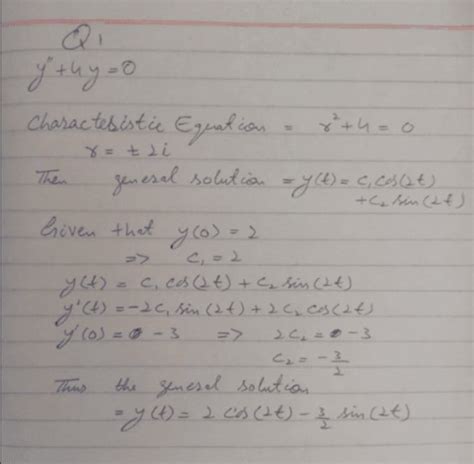 Q1
y" + 4y = 0
Characteristic Equation = r² + 4 = 0
r = ± 2i
Then general solution = y(t) = c₁ cos(2t)
+ c₂ sin(2t)
Given that y(0) = 2
=> c₁ = 2
y(t) = c₁ cos(2t) + c₂ sin(2t)
y'(t) = -2c₁ sin(2t) + 2c₂ cos(2t)
y'(0) = -3 => 2c₂ = -3
c₂ = -3/2
Thus the general solution
= y(t) = 2 cos(2t) - 3/2 sin(2t)